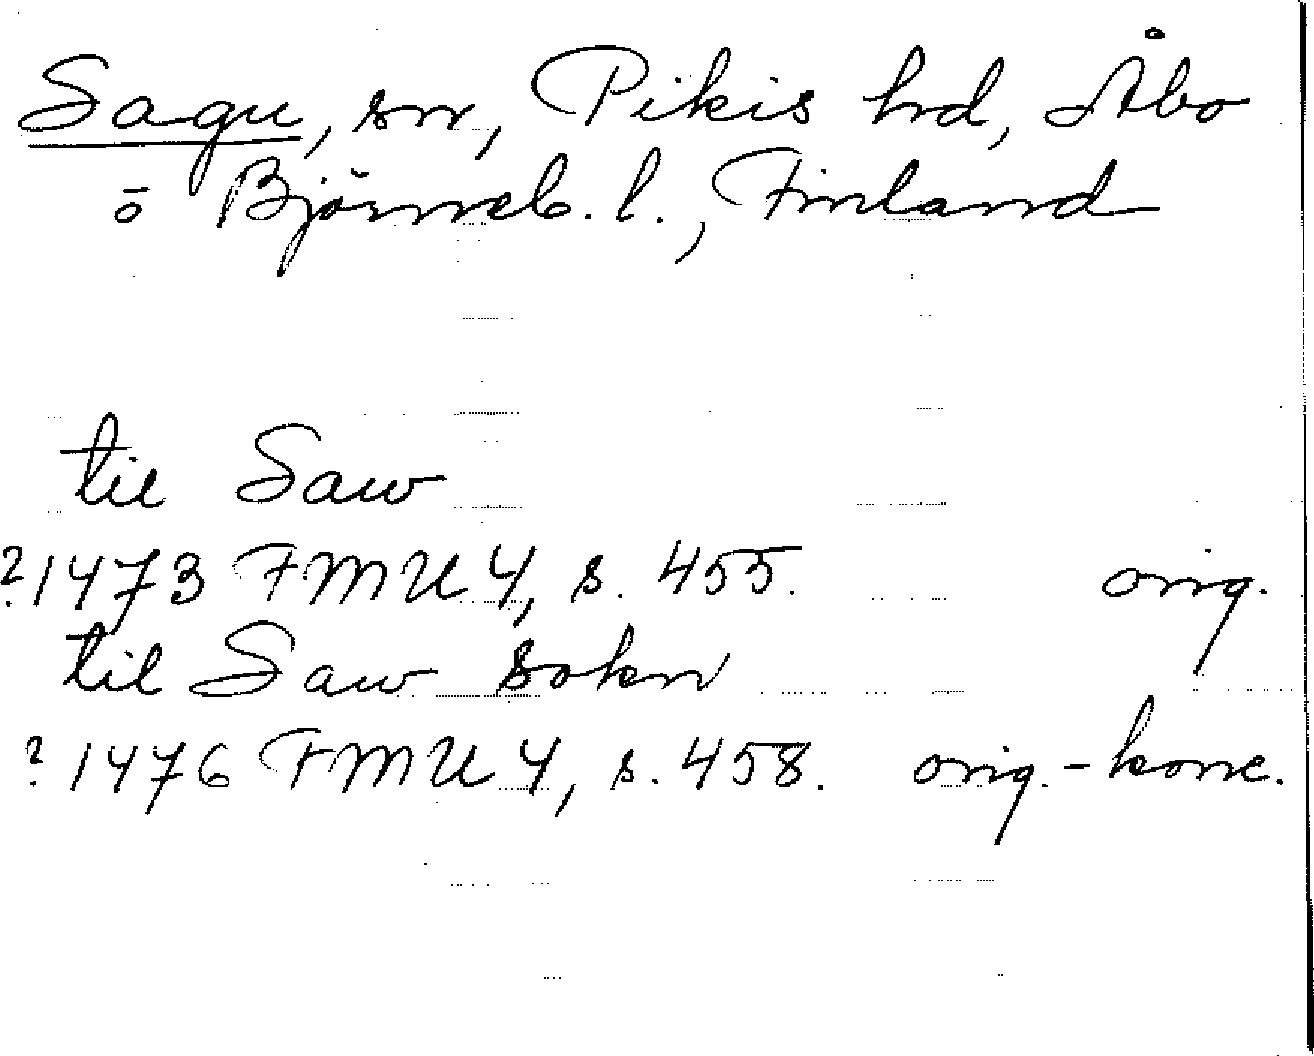 Sagu, sn, Pikis hd, Åbo
o Björneb. l., Finland
til Saw
? 1473 FMU 4, s. 455. orig.
til Saw sokn
? 1476 FMU 4, s. 458. orig.-konc.